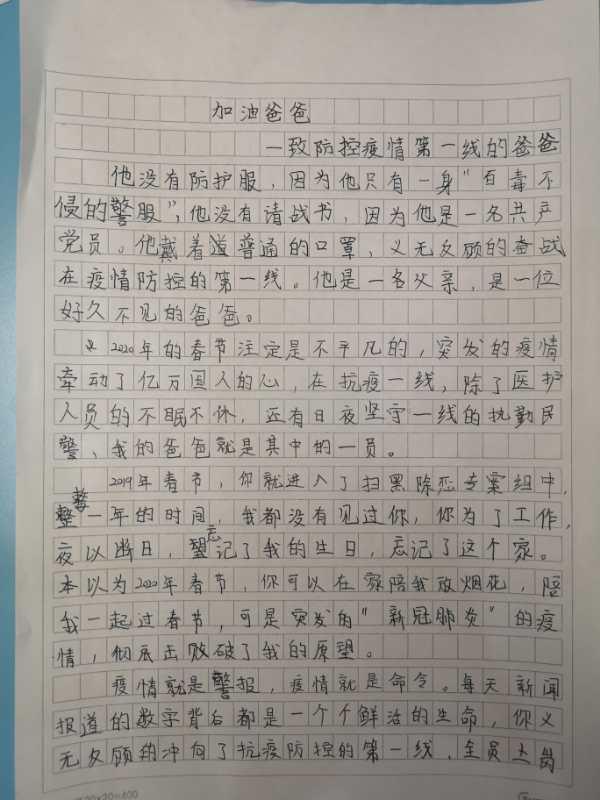 加油爸爸
—致防控疫情第一线的爸爸
他没有防护服，因为他只有一身"百毒不
侵的警服"，他没有请战书，因为他是一名共产
党员。他戴着道普通的口罩，义无反顾的奋战
在疫情防控的第一线。他是一名父亲，是一位
好久不见的爸爸。
2020年的春节注定是不平凡的，突发的疫情
牵动了亿万国人的心，在抗疫一线，除了医护
人员的不眠不休，还有日夜坚守一线的执勤民
警、我的爸爸就是其中的一员。
2019年春节，你就进入了扫黑除恶专案组中，
整一年的时间，我都没有见过你，你为了工作，
夜以断日，忘记了我的生日，忘记了这个家。
本以为2020年春节，你可以在家陪我放烟花，陪
我一起过春节，可是突发的"新冠肺炎"的疫
情，彻底击败破了我的原望。
疫情就是警报，疫情就是命令。每天新闻
报道的数字背后都是一个个鲜活的生命，你义
无反顾的冲向了抗疫防控的第一线，全员上岗
20×20=400